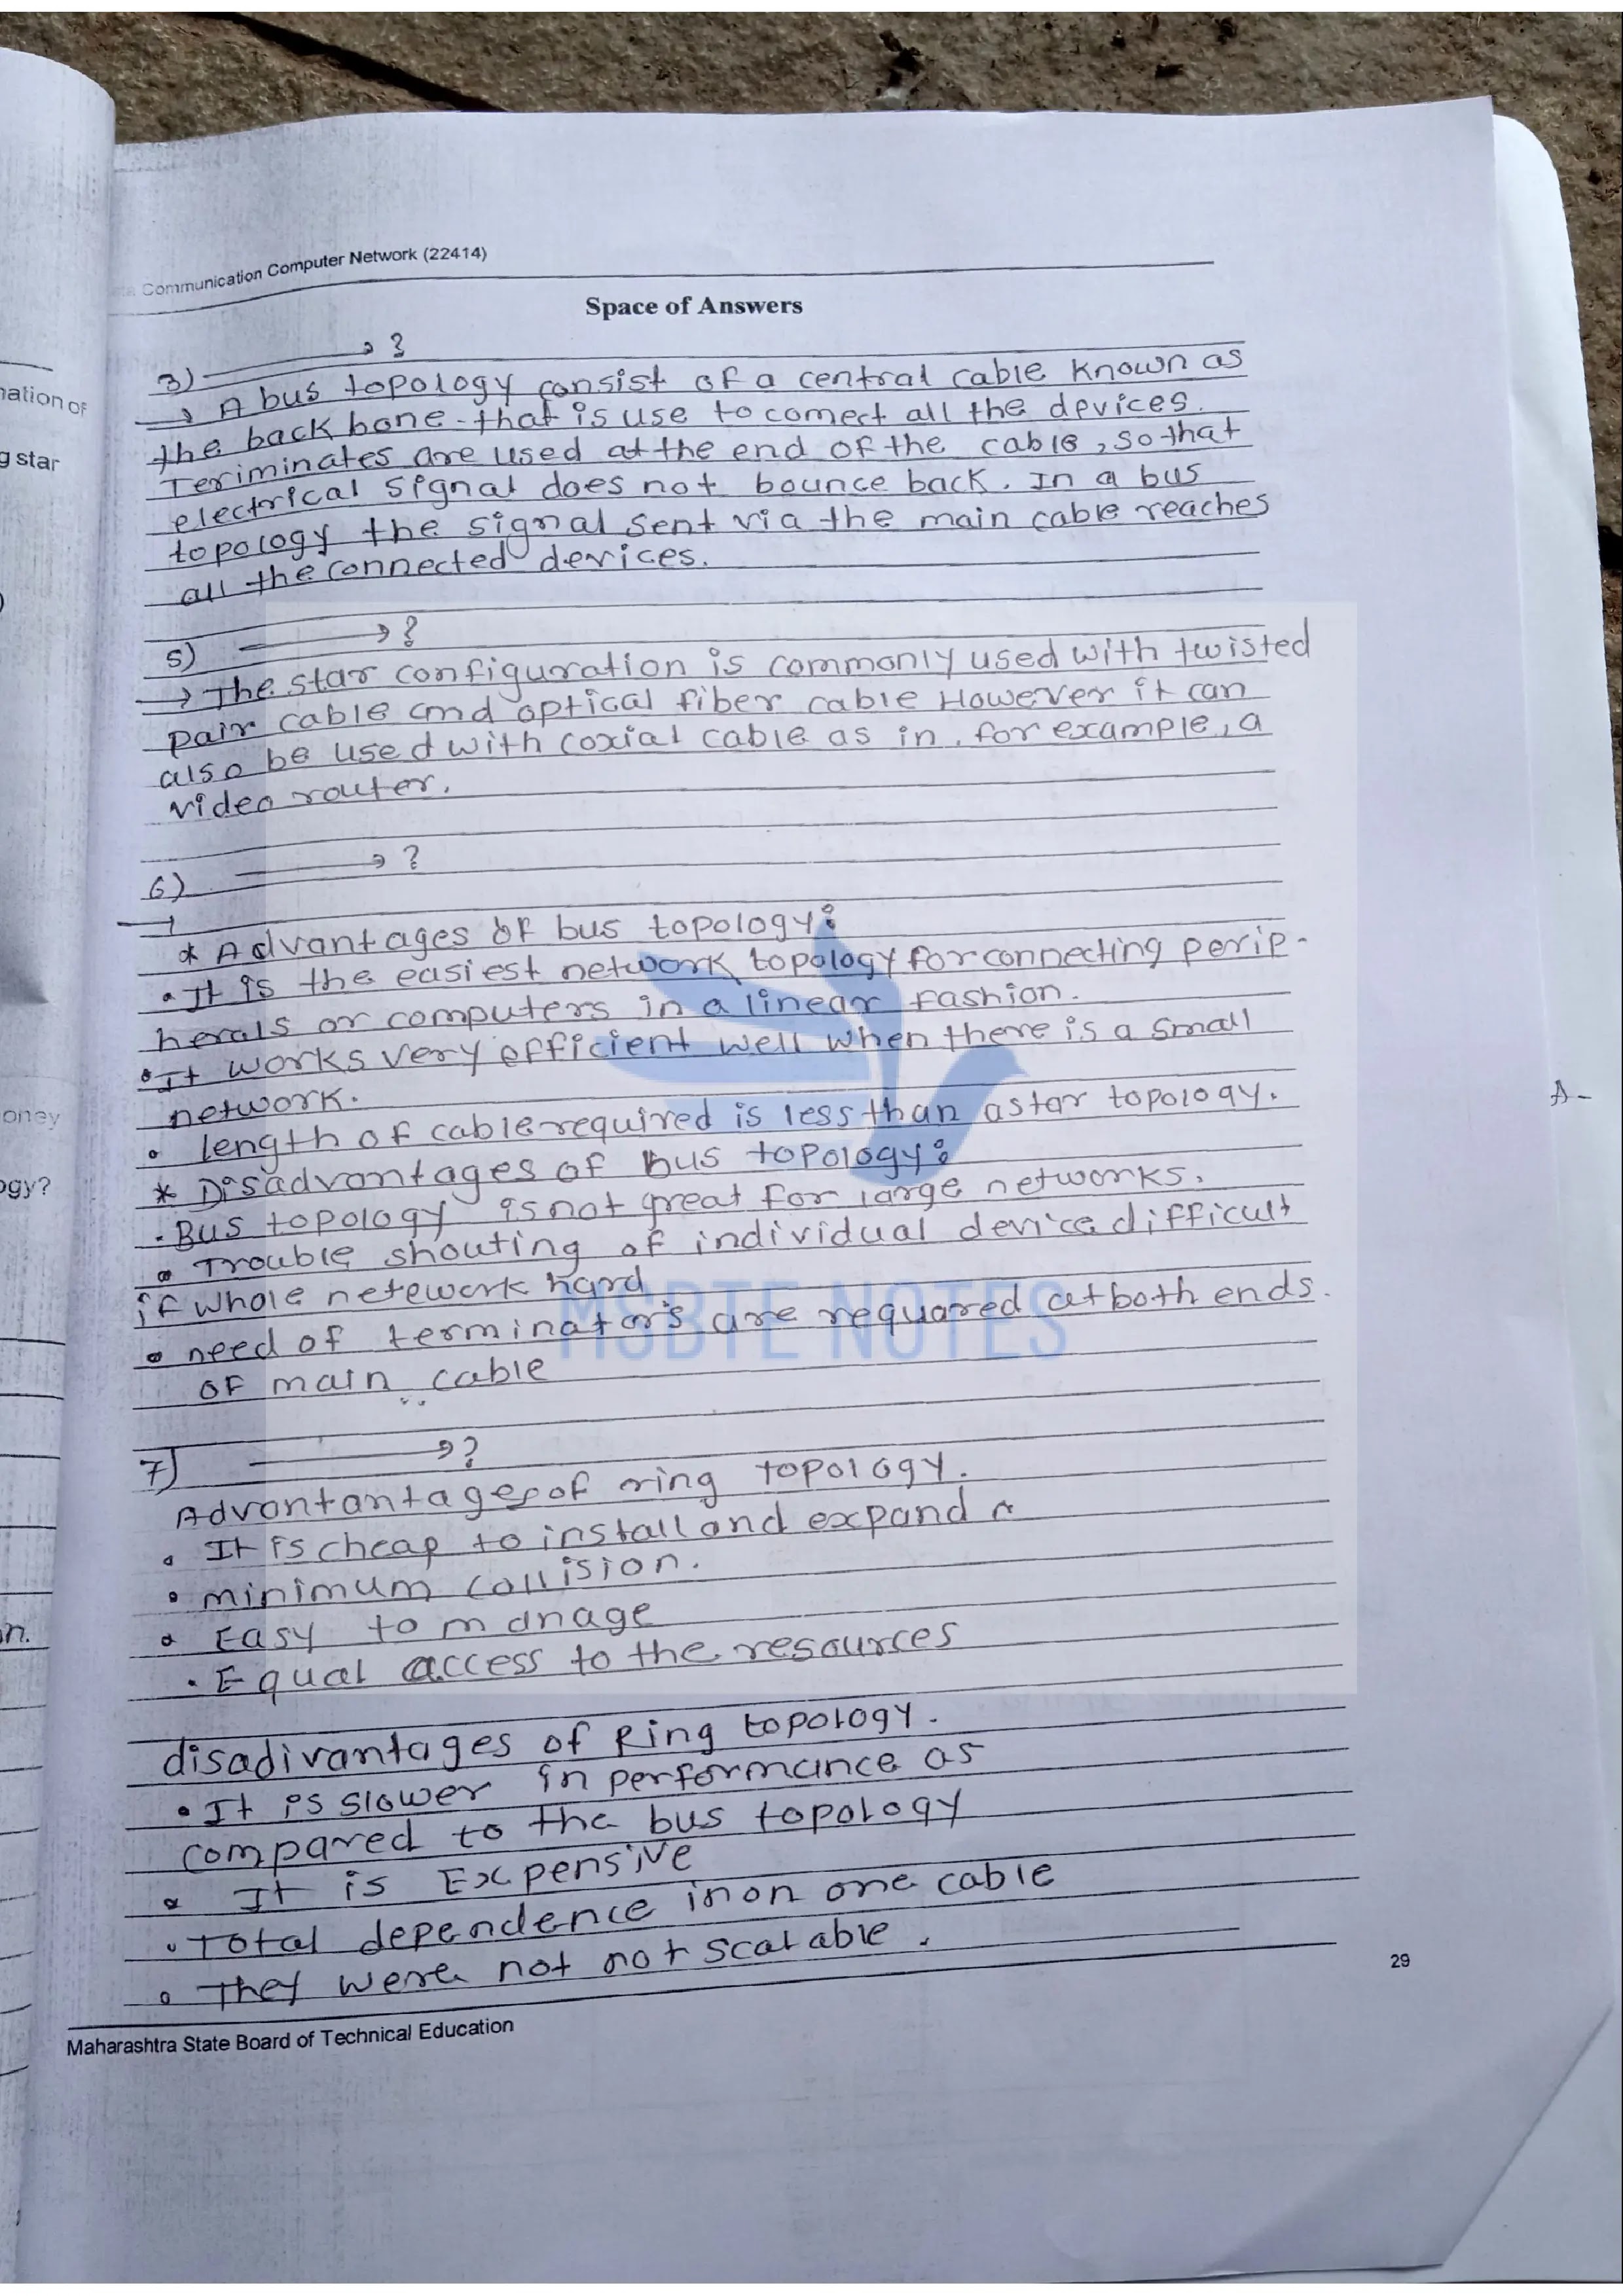 Communication Computer Network (22414)
Space of Answers
3) → ?
→ A bus topology consist of a central cable known as
the back bone that is use to comect all the devices.
Teriminates are used at the end of the cable, so that
electrical signal does not bounce back. In a bus
topology the signal sent via the main cable reaches
all the connected devices.
5) → ?
→ The star configuration is commonly used with twisted
pair cable and optical fiber cable However it can
also be used with coxial cable as in, for example, a
video router.
6) → ?
* Advantages of bus topology:
• It is the easiest network topology for connecting perip-
herals or computers in a linear fashion.
• It works very efficient well when there is a small
network.
• length of cable required is less than a star topology.
* Disadvantages of bus topology:
• Bus topology is not great for large networks.
• Trouble shouting of individual device difficult
if whole netework hard
• need of terminator's are requared at both ends
of main cable
7) → ?
Advantantages of ring topology.
• It is cheap to install and expand
• minimum collision.
• Easy to manage
• Equal access to the resources
disadivantages of Ring topology.
• It is slower in performance as
compared to the bus topology
• It is Expensive
• Total dependence in on one cable
• They were not not scalable.
29
Maharashtra State Board of Technical Education
nation of
g star
oney
ogy?
n.
A-
MSBTE NOTES